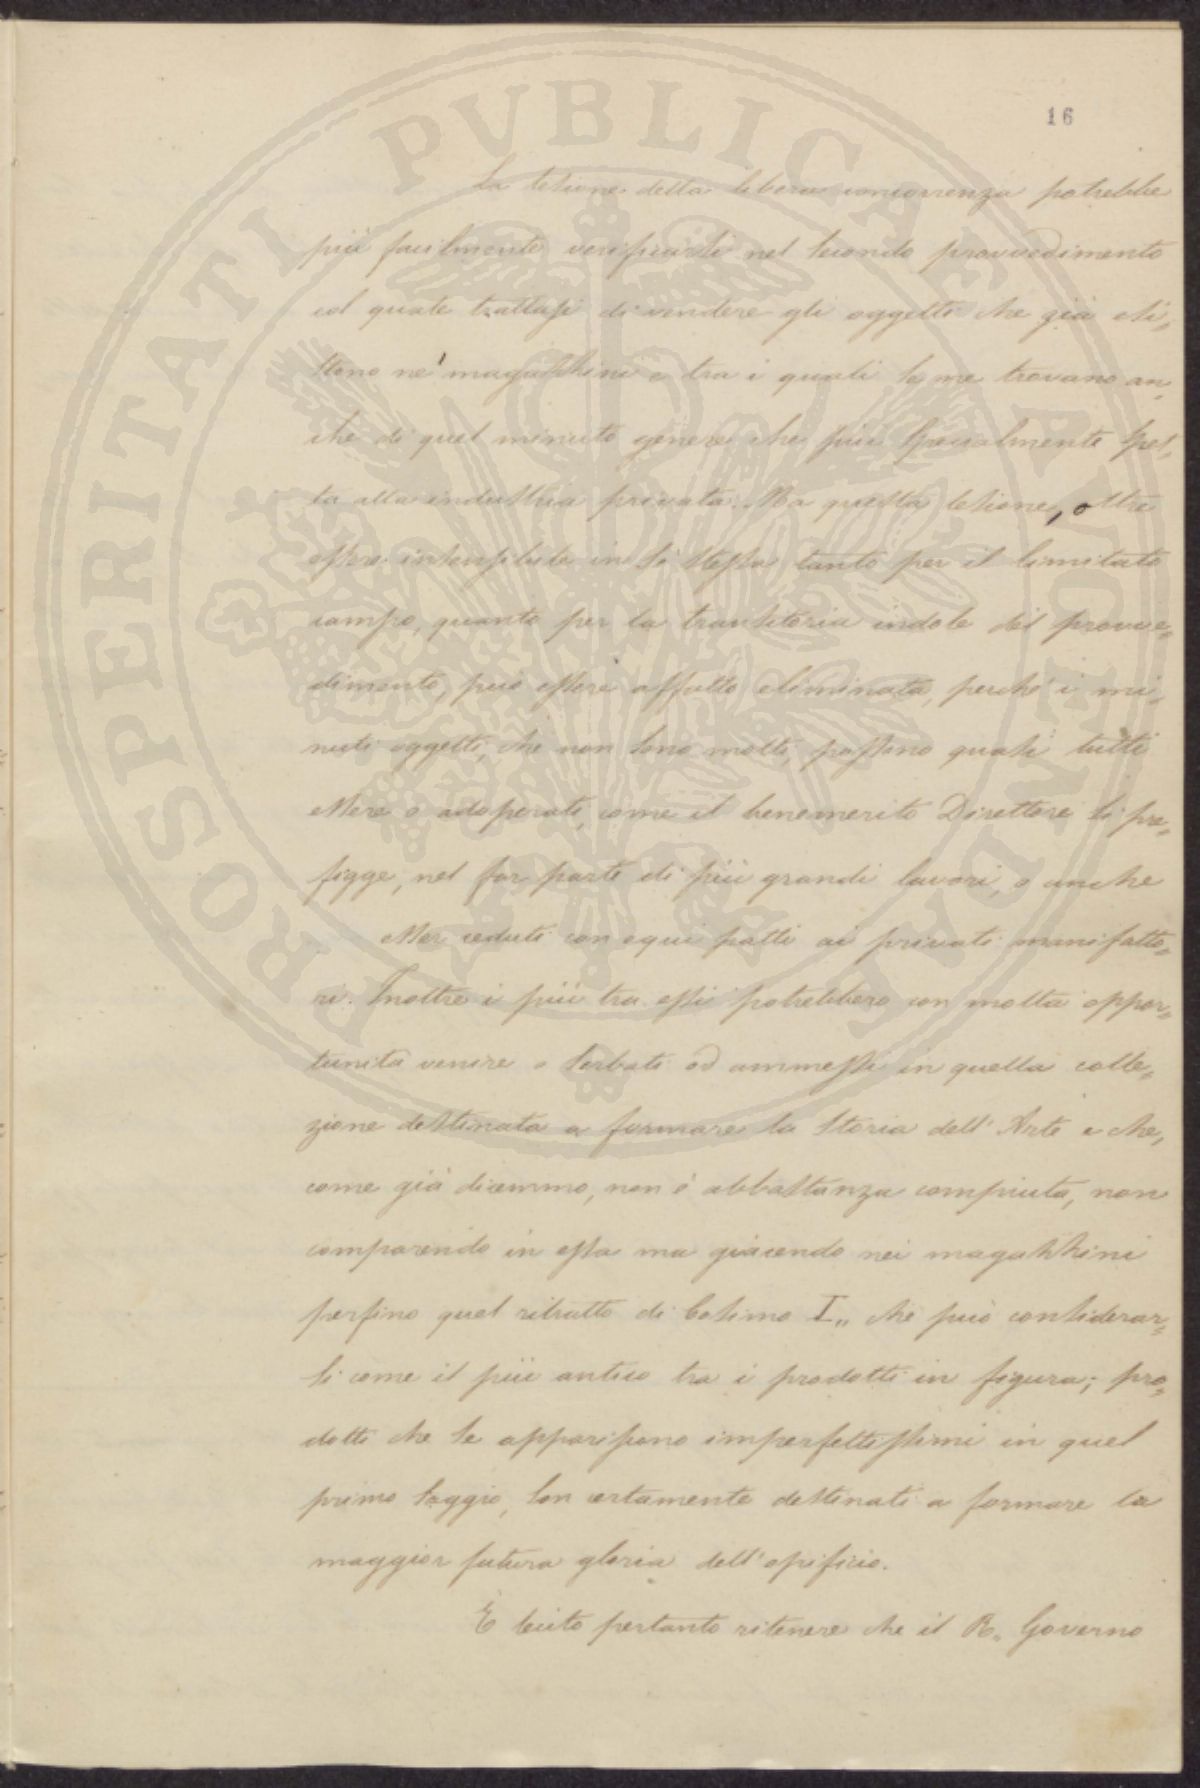 16
La lesione della libera concorrenza potrebbe
più facilmente verificarsi nel secondo provvedimento
col quale trattasi di vendere gli oggetti che già esi=
stono ne' magazzini e tra i quali se ne trovano an=
che di quel minuto genere che più specialmente spet=
ta alla industria privata. Ma questa lesione, oltre
essere insensibile in se stessa tanto per il limitato
campo, quanto per la transitoria indole del provve=
dimento, può essere affatto eliminata, perché i mi=
nuti oggetti, che non sono molti, possono quasi tutti
essere o adoperati, come il benemerito Direttore si pre=
figge, nel far parte di più grandi lavori, o anche
esser ceduti con equi patti ai privati manifatto=
ri. Inoltre i più tra essi potrebbero con molta oppor=
tunità venire o serbati od ammessi in quella colle=
zione destinata a formare la Storia dell'Arte e che,
come già dicemmo, non è abbastanza compiuta, non
comparendo in essa ma giacendo nei magazzini
perfino quel ritratto di Cosimo I,, che può considerar=
si come il più antico tra i prodotti in figura; pro=
dotti che se appariscono imperfettissimi in quel
primo saggio, son certamente destinati a formare la
maggior futura gloria dell'opificio.
È lecito pertanto ritenere che il R. Governo
PROSPERITATI PVBLICAE AVGENDAE